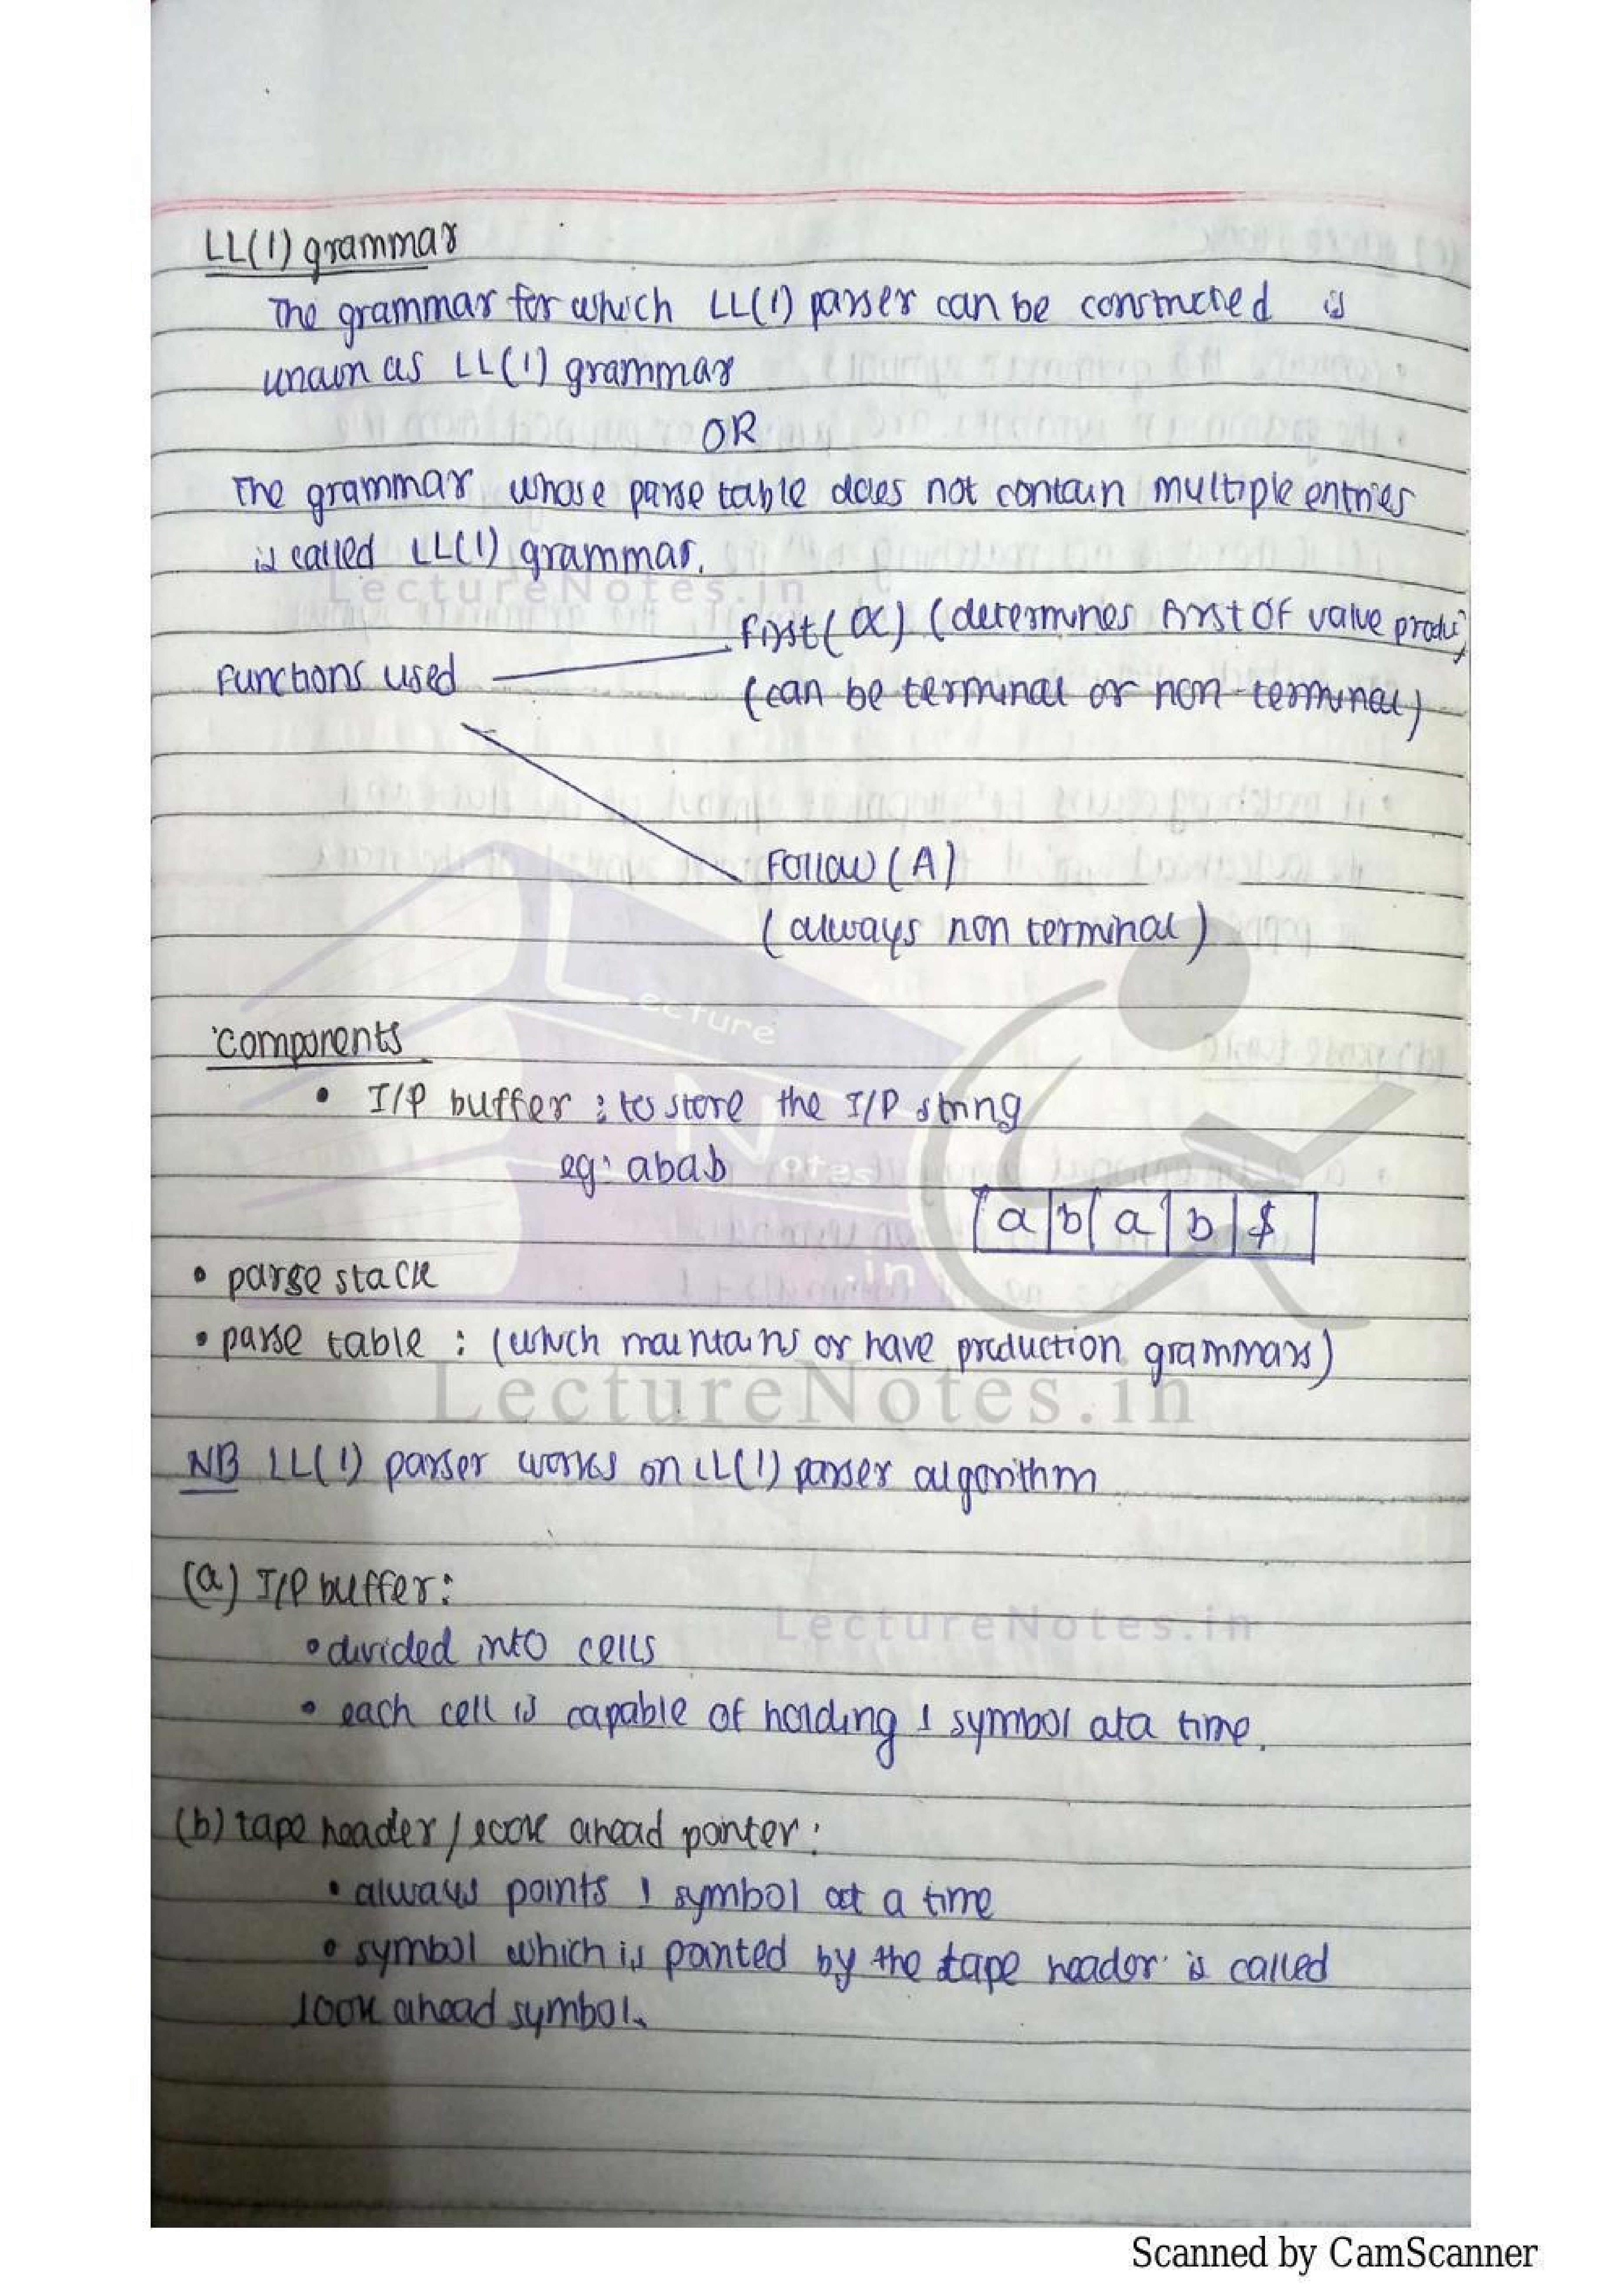 LL(1) grammar
The grammar for which LL(1) parser can be constructed is
known as LL(1) grammar
OR
The grammar whose parse table does not contain multiple entries
is called LL(1) grammar.
LectureNotes.in
First(α) (determines first of value
Functions used
(can be terminal or non-terminal)
Follow (A)
(always non terminal)
Lecture
Components
• I/P buffer : to store the I/P string
Notes
eg: abab
a b a b $
.in
• parse stack
• parse table : (which maintains or have production grammars)
LectureNotes.in
NB LL(1) parser works on LL(1) parser algorithm
(a) I/P buffer:
LectureNotes.in
• divided into cells
• each cell is capable of holding 1 symbol at a time.
(b) tape header / look ahead pointer:
• always points 1 symbol at a time
• symbol which is pointed by the tape header is called
look ahead symbol.
Scanned by CamScanner